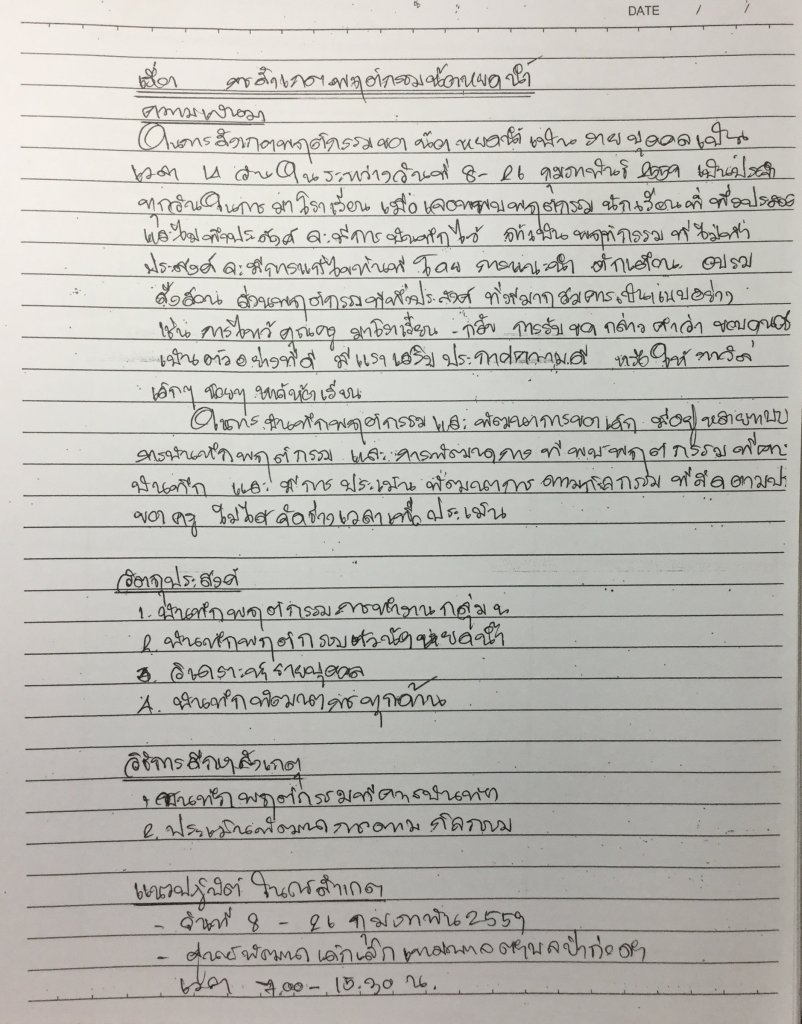 DATE / /
เรื่อง การสังเกตพฤติกรรมน้องหยดน้ำ
ความเป็นมา
ในการสังเกตพฤติกรรมของ น้องหยดน้ำ เป็น รายบุคคลเป็น
เวลา 14 วัน ใน ระหว่างวันที่ 8 - 26 กุมภาพันธ์ 2559 เป็นประจำ
ทุกวันในการ มาโรงเรียน เมื่อ พบพฤติกรรม นักเรียนที่ พึงประสงค์
และไม่พึงประสงค์ จะมีการ บันทึกไว้ ถ้าเป็น พฤติกรรม ที่ไม่พึง
ประสงค์ จะมีการแก้ไขทันที โดย การแนะนำ ตักเตือน อบรม
สั่งสอน ส่วนพฤติกรรมที่พึงประสงค์ ที่ เป็นแบบอย่าง
เช่น การไหว้ คุณครู มาโรงเรียน - กลับ การรับของ กล่าว คำว่า ขอบคุณ
เป็นตัวอย่างที่ดี มีแรงเสริม ประกาศความดี หรือให้ รางวัล
เล็กๆ น้อยๆ หน้าห้องเรียน
ในการบันทึกพฤติกรรมและ พัฒนาการของเด็ก มีอยู่ หลายแบบ
การบันทึกพฤติกรรม และ การพัฒนา ที่พบพฤติกรรม ที่ควร
บันทึก และ มีการ ประเมิน พัฒนาการ ตามกิจกรรม
ของ ครู ไม่ได้จัดช่วงเวลาเพื่อประเมิน
วัตถุประสงค์
1. บันทึกพฤติกรรมการทำงานกลุ่ม
2. บันทึกพฤติกรรมตัวน้องหยดน้ำ
3. วิเคราะห์รายบุคคล
4. บันทึกพัฒนาการทุกด้าน
วิธีการศึกษาสังเกต
1. บันทึกพฤติกรรมที่ควรบันทึก
2. ประเมินพัฒนาการตามกิจกรรม
แนวปฏิบัติ ในการสังเกต
- วันที่ 8 - 26 กุมภาพันธ์ 2559
- ศูนย์พัฒนาเด็กเล็กเทศบาลตำบลป่าก่อดำ
เวลา 7.00 - 15.30 น.